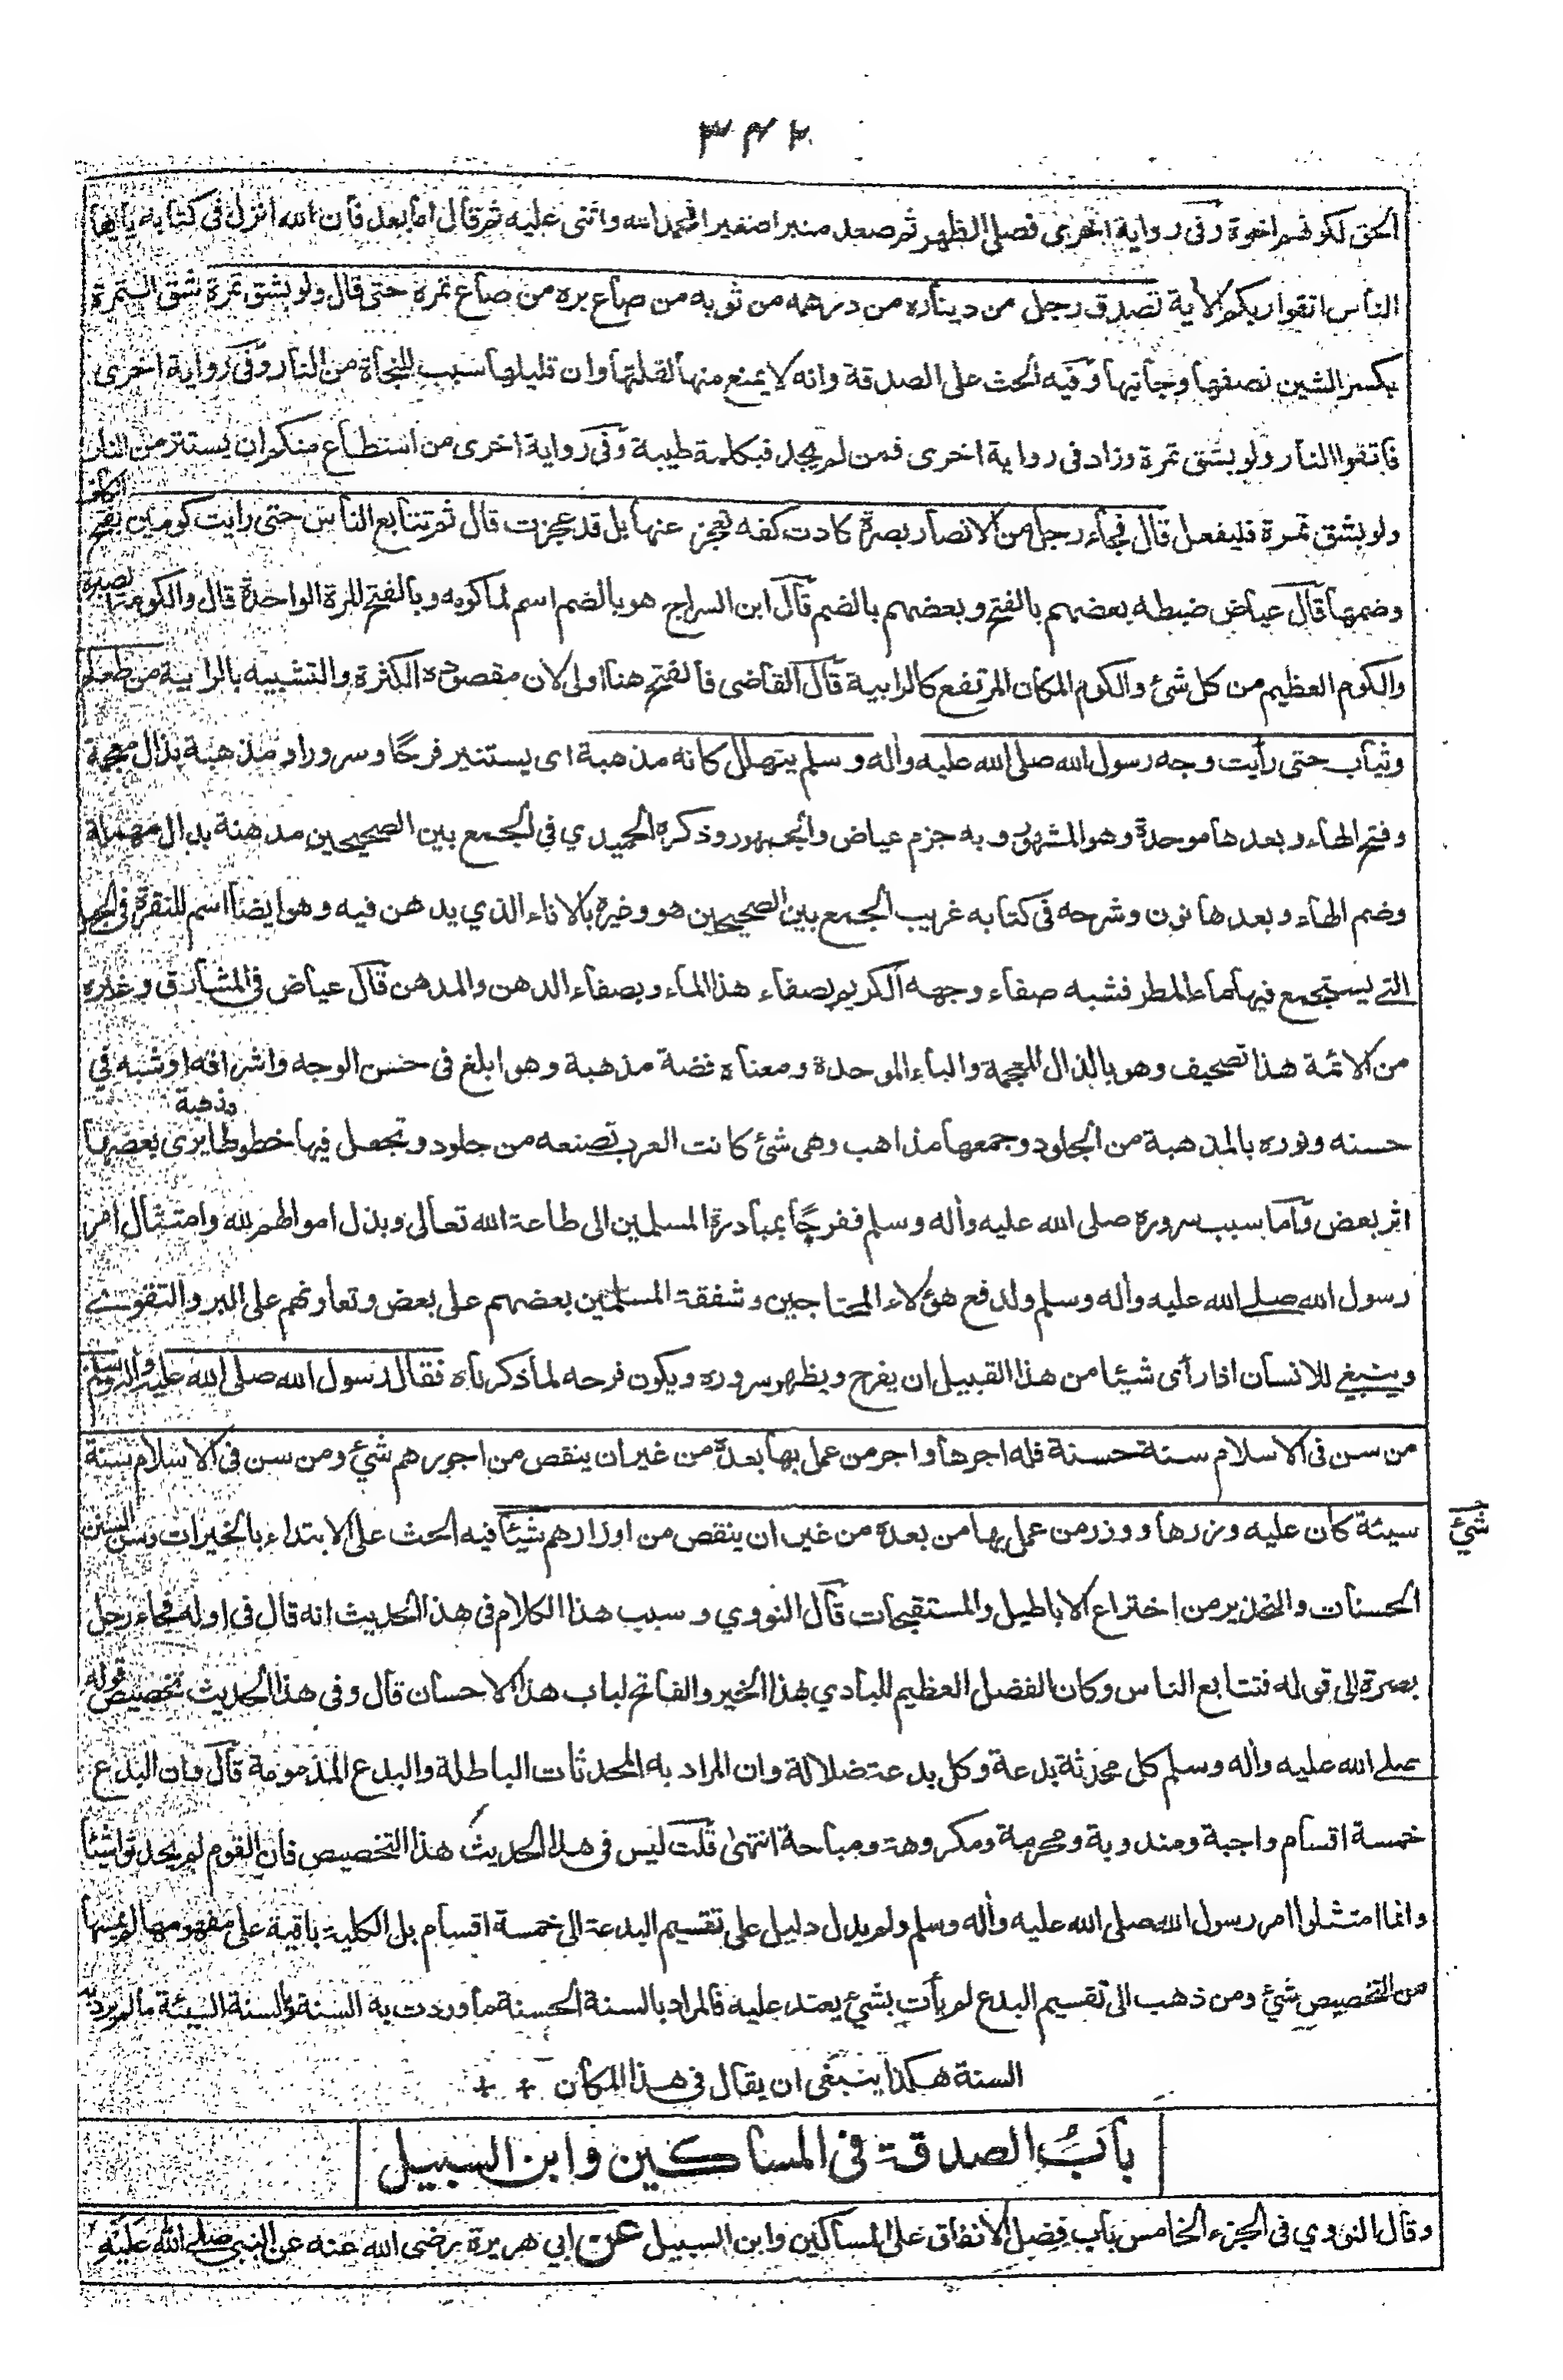 ٣٤٢
الحق لكونهم اخوة وفى رواية اخرى فصلى الظهر ثم صعد منبرا صغيرا فحمد الله واثنى عليه ثم قال اما بعد فان الله انزل فى كتابه يايها
الناس اتقوا ربكم الأية تصدق رجل من ديناره من درهمه من ثوبه من صاع بره من صاع تمره حتى قال ولو بشق تمرة شق التمرة
بكسر الشين نصفها وجانبها وفيه الحث على الصدقة وانه لا يمنع منها لقلتها وان قليلها سبب للنجاة من النار وفى رواية اخرى
فاتقوا النار ولو بشق تمرة وزاد فى رواية اخرى فمن لم يجد فبكلمة طيبة وفى رواية اخرى من استطاع منكم ان يستتر من النار
ولو بشق تمرة فليفعل قال فجاء رجل من الانصار بصرة كادت كفه تعجز عنها بل قد عجزت قال ثم تتابع الناس حتى رايت كومين بفتح الكاف
وضمها قال عياض ضبطه بعضهم بالفتح وبعضهم بالضم قال ابن السراج هو بالضم اسم لما كومه وبالفتح للمرة الواحدة قال والكومة الصبرة
والكوم العظيم من كل شئ والكوم المكان المرتفع كالرابية قال القاضى فالفتح هنا اولى لان مقصوده الكثرة والتشبيه بالرابية من طعام
وثياب حتى رأيت وجه رسول الله صلى الله عليه وأله وسلم يتهلل كانه مذهبة اى يستنير فرحًا وسرورا ومذهبة بذال معجمة
وفتح الهاء وبعدها موحدة وهو المشهور وبه جزم عياض والجمهور وذكره الحميدي فى الجمع بين الصحيحين مدهنة بدال مهملة
وضم الهاء وبعدها نون وشرحه فى كتابه غريب الجمع بين الصحيحين هو وغيره بالاناء الذي يدهن فيه وهو ايضا اسم للنقرة فى الجبل
التى يستجمع فيها ماء المطر فشبه صفاء وجهه الكريم بصفاء هذا الماء وبصفاء الدهن والمدهن قال عياض فى المشارق وغيره
من الائمة هذا تصحيف وهو بالذال المعجمة والباء الموحدة ومعناه فضة مذهبة وهو ابلغ فى حسن الوجه واشراقه او شبه فى
حسنه ونوره بالمذهبة من الجلود وجمعها مذاهب وهى شئ كانت العرب تصنعه من جلود وتجعل فيها خطوطا مذهبة يرى بعضها
اثر بعض وأما سبب سروره صلى الله عليه وأله وسلم ففرحًا بمبادرة المسلمين الى طاعة الله تعالى وبذل اموالهم لله وامتثال امر
رسول الله صلى الله عليه وأله وسلم ولدفع هؤلاء المحتاجين وشفقة المسلمين بعضهم على بعض وتعاونهم على البر والتقوى
وينبغى للانسان اذا رأى شيئا من هذا القبيل ان يفرح ويظهر سروره ويكون فرحه لما ذكرناه فقال رسول الله صلى الله عليه وأله وسلم
من سن فى الاسلام سنة حسنة فله اجرها واجر من عمل بها بعده من غير ان ينقص من اجورهم شئ ومن سن فى الاسلام سنة
سيئة كان عليه وزرها ووزر من عمل بها من بعده من غير ان ينقص من اوزارهم شيئًا فيه الحث على الابتداء بالخيرات وسن السنن
شئ
الحسنات والتحذير من اختراع الاباطيل والمستقبحات قال النووي وسبب هذا الكلام فى هذا الحديث انه قال فى اوله فجاء رجل
بصرة الى قوله فتتابع الناس وكان الفضل العظيم للبادي بهذا الخير والفاتح لباب هذا الاحسان قال وفى هذا الحديث تخصيص قوله
صلى الله عليه وأله وسلم كل محدثة بدعة وكل بدعة ضلالة وان المراد به المحدثات الباطلة والبدع المذمومة قال وان البدع
خمسة اقسام واجبة ومندوبة ومحرمة ومكروهة ومباحة انتهى قلت ليس فى هذا الحديث هذا التخصيص فان القوم لم يحدثوا شيئا
وانما امتثلوا امر رسول الله صلى الله عليه وأله وسلم ولم يدل دليل على تقسيم البدعة الى خمسة اقسام بل الكلية باقية على مفهومها لم يمسها
من التخصيص شئ ومن ذهب الى تقسيم البدع لم يأت بشئ يعتد عليه فالمراد بالسنة الحسنة ما وردت به السنة والسنة السيئة ما لم يرد به
السنة هكذا ينبغى ان يقال فى هذا المكان
باب الصدقة فى المساكين وابن السبيل
وقال النووي فى الجزء الخامس باب فضل الانفاق على المساكين وابن السبيل عن ابي هريرة رضى الله عنه عن النبي صلى الله عليه